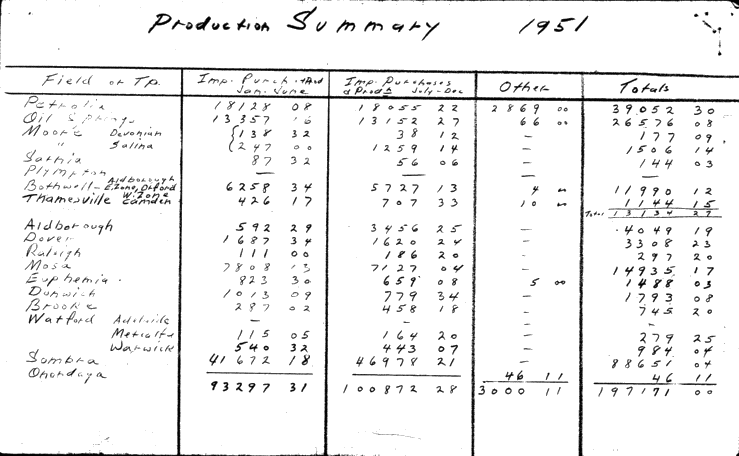 Production Summary 1951
Field or Tp. Imp. Purch. + Prod Jan. June Imp. Purchases & Prod'n July - Dec Other Totals
Petrolia 18128 08 18055 22 2869 00 39052 30
Oil Springs 13357 16 13152 27 66 00 26576 08
Moore Devonian 138 32 38 12 - 177 09
" Salina 247 00 1259 14 - 1506 14
Sarnia 87 32 56 06 - 144 03
Plympton - - - -
Bothwell - Aldborough E. Zone, Orford 6258 34 5727 13 4 00 11990 12
Thamesville W. Zone Camden 426 17 707 33 10 00 1144 15
Total 13134 27
Aldborough 592 29 3456 25 - 4049 19
Dover 1687 34 1620 24 - 3308 23
Raleigh 111 00 186 20 - 297 20
Mosa 7808 13 7127 04 - 14935 17
Euphemia 823 30 659 08 5 00 1488 03
Dunwich 1013 09 779 34 - 1793 08
Brooke 287 02 458 18 - 745 20
Watford Adelaide - - - -
Metcalfe 115 05 164 20 - 279 25
Warwick 540 32 443 07 - 984 04
Sombra 41672 18 46978 21 - 88651 04
Onondaga 46 11 46 11
93297 31 100872 28 3000 11 197171 00